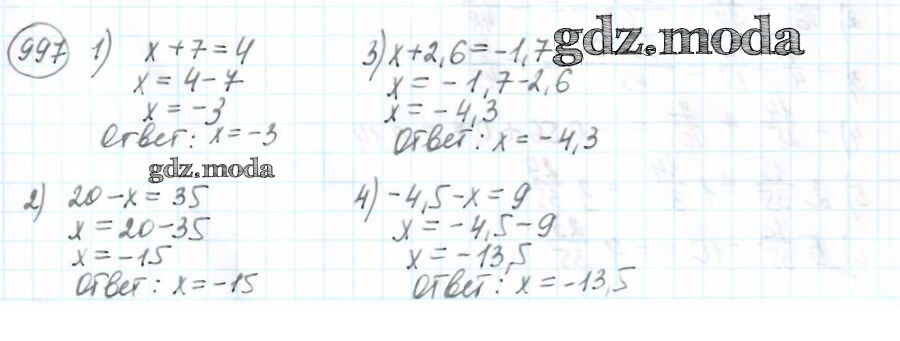 997 1) x + 7 = 4
x = 4 - 7
x = -3
Ответ: x = -3
gdz.moda
2) 20 - x = 35
x = 20 - 35
x = -15
Ответ: x = -15
3) x + 2,6 = -1,7
x = -1,7 - 2,6
x = -4,3
Ответ: x = -4,3
gdz.moda
4) -4,5 - x = 9
x = -4,5 - 9
x = -13,5
Ответ: x = -13,5